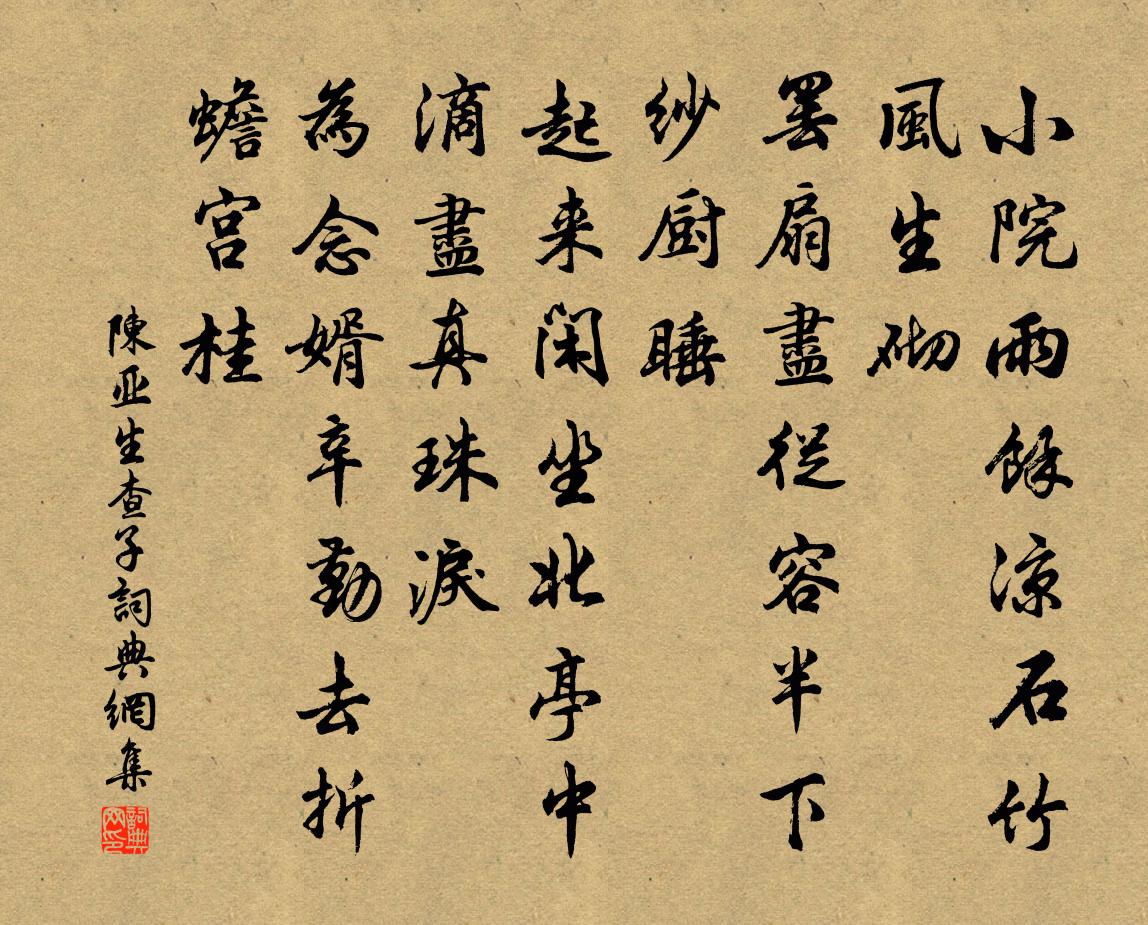 小院雨餘涼石竹
風生砌
罢扇盡從容半下
紗厨睡
起来閑坐北亭中
滴盡真珠淚
為念婿辛勤去折
蟾宫桂
陳亚生查子詞典網集
詞典网印